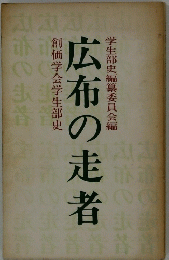 学生部史編纂委員会編
広布の走者
創価学会学生部史